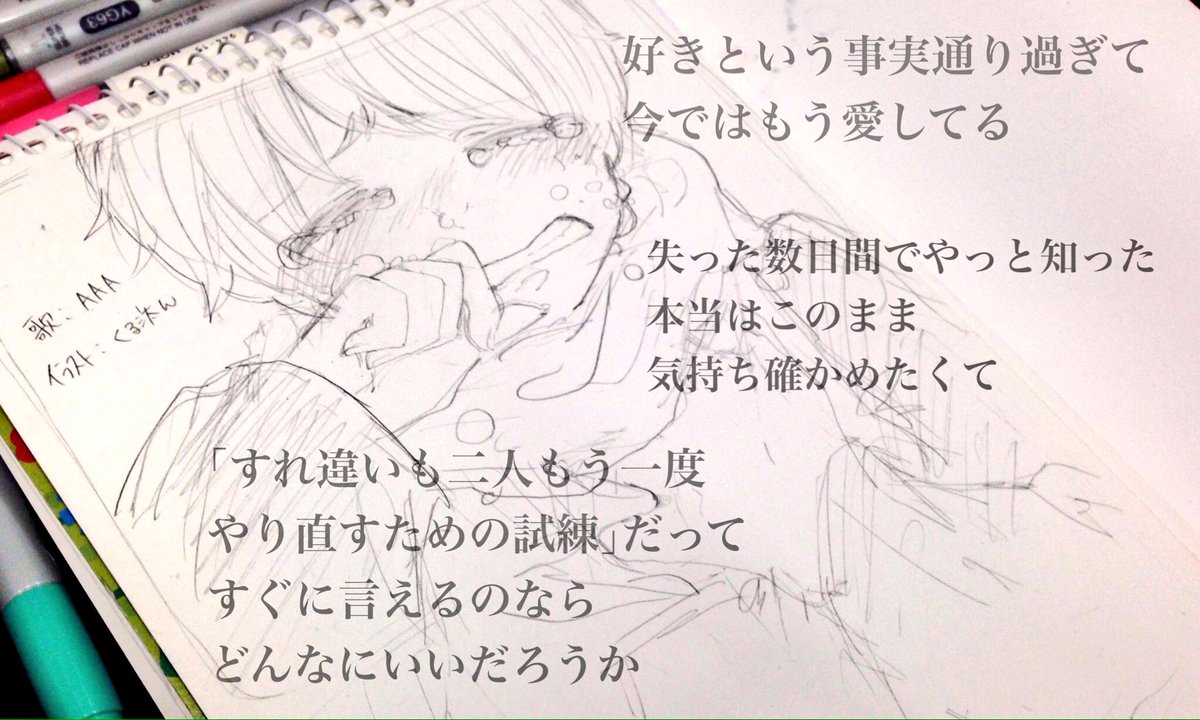 VG63
REPLACE CAP WHEN NOT IN USE
好きという事実通り過ぎて
今ではもう愛してる
失った数日間でやっと知った
本当はこのまま
気持ち確かめたくて
歌：AAA
イラスト：くろ次ん
「すれ違いも二人もう一度
やり直すための試練」だって
すぐに言えるのなら
どんなにいいだろうか